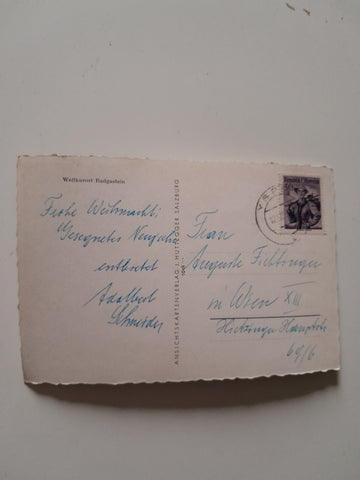 Weltkurort Badgastein
Frohe Weihnacht &
Gesegnetes Neujahr
entbietet
Adalbert
Schneider
ANSICHTSKARTENVERLAG L. HUTTEGGER SALZBURG
Frau
Auguste
in Wien XIII
Hietzinger Hauptstr
69/6